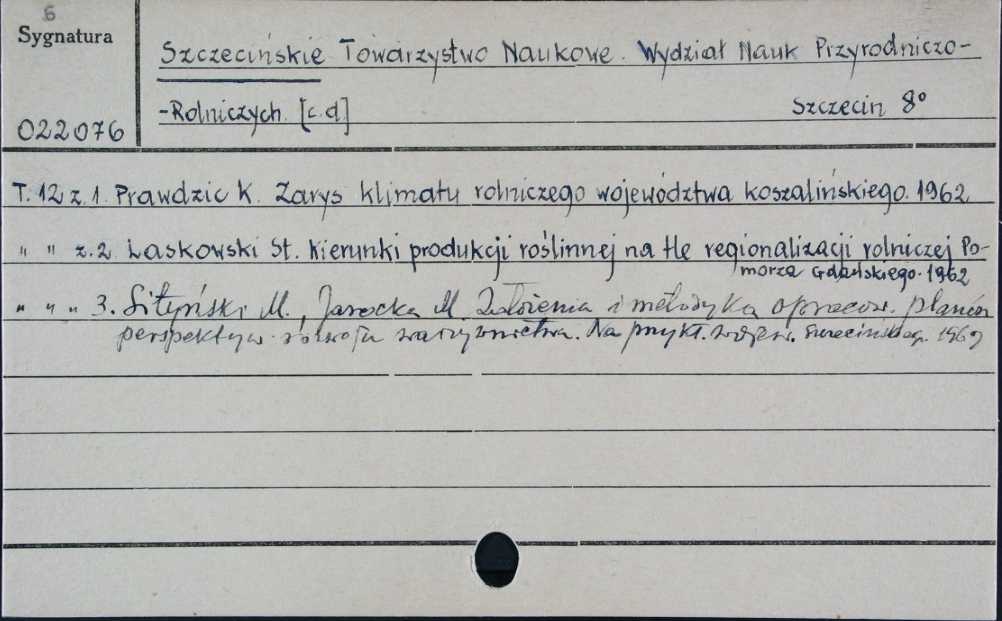 6
Sygnatura
Szczecińskie Towarzystwo Naukowe. Wydział Nauk Przyrodniczo-
-Rolniczych. [c.d]
Szczecin 8°
022076
T. 12 z. 1. Prawdzic K. Zarys klimatu rolniczego województwa koszalińskiego. 1962
" " z. 2. Laskowski St. Kierunki produkcji roślinnej na tle regionalizacji rolniczej Po-
morza Gdańskiego. 1962
" " " 3. M., Jarocka M. Założenia i metodyka opracow. planów
perspektyw. rozwoju warzywnictwa. Na przykł. wojew. szczecińskieg.